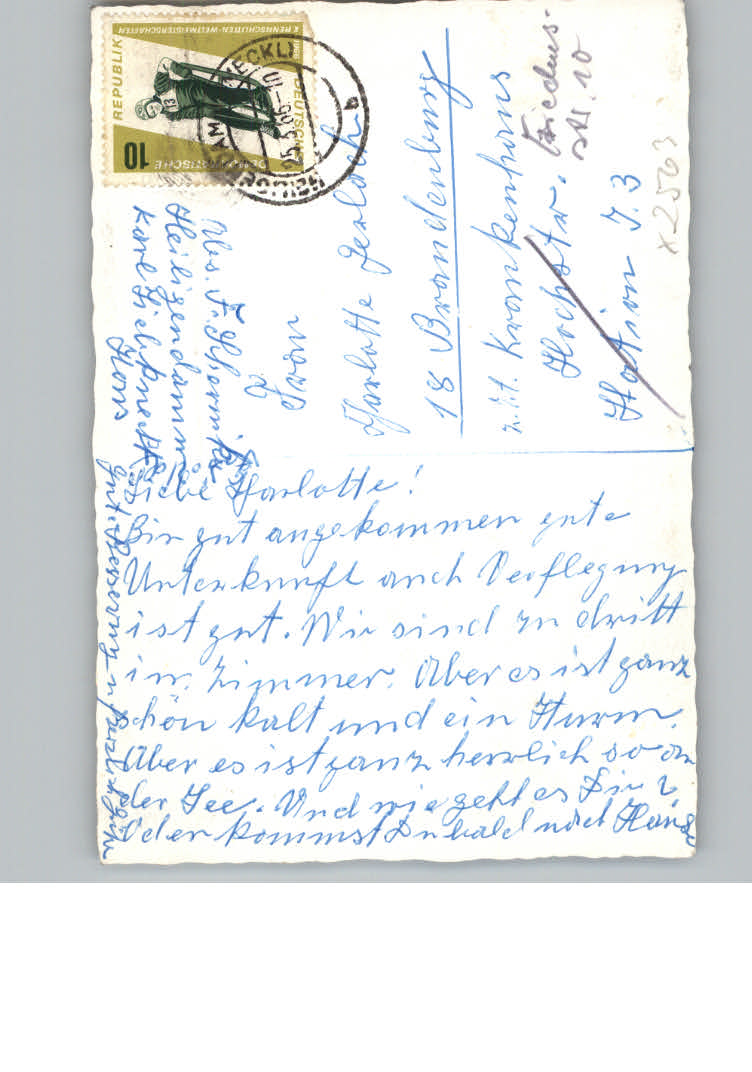 DEUTSCHE
DEMOKRATISCHE
REPUBLIK
RENNSCHLITTEN-WELTMEISTERSCHAFTEN
10
Abs. F.
Heiligendamm
Karl Liebknecht
Haus
Frau
Charlotte Gerlach
18 Brandenburg
z. Zt. Krankenhaus
Hochstr.
Friedens-
str. 10
Station I.3
x2563
Liebe Charlotte!
Bin gut angekommen gute
Unterkunft auch Verflegung
ist gut. Wir sind zu dritt
im Zimmer. Aber es ist ganz
schön kalt und ein Sturm.
Aber es ist ganz herrlich so an
der See. Und wie geht es Dir?
Oder kommst Du bald nach Hause
gute Besserung u. herzl. Grüße